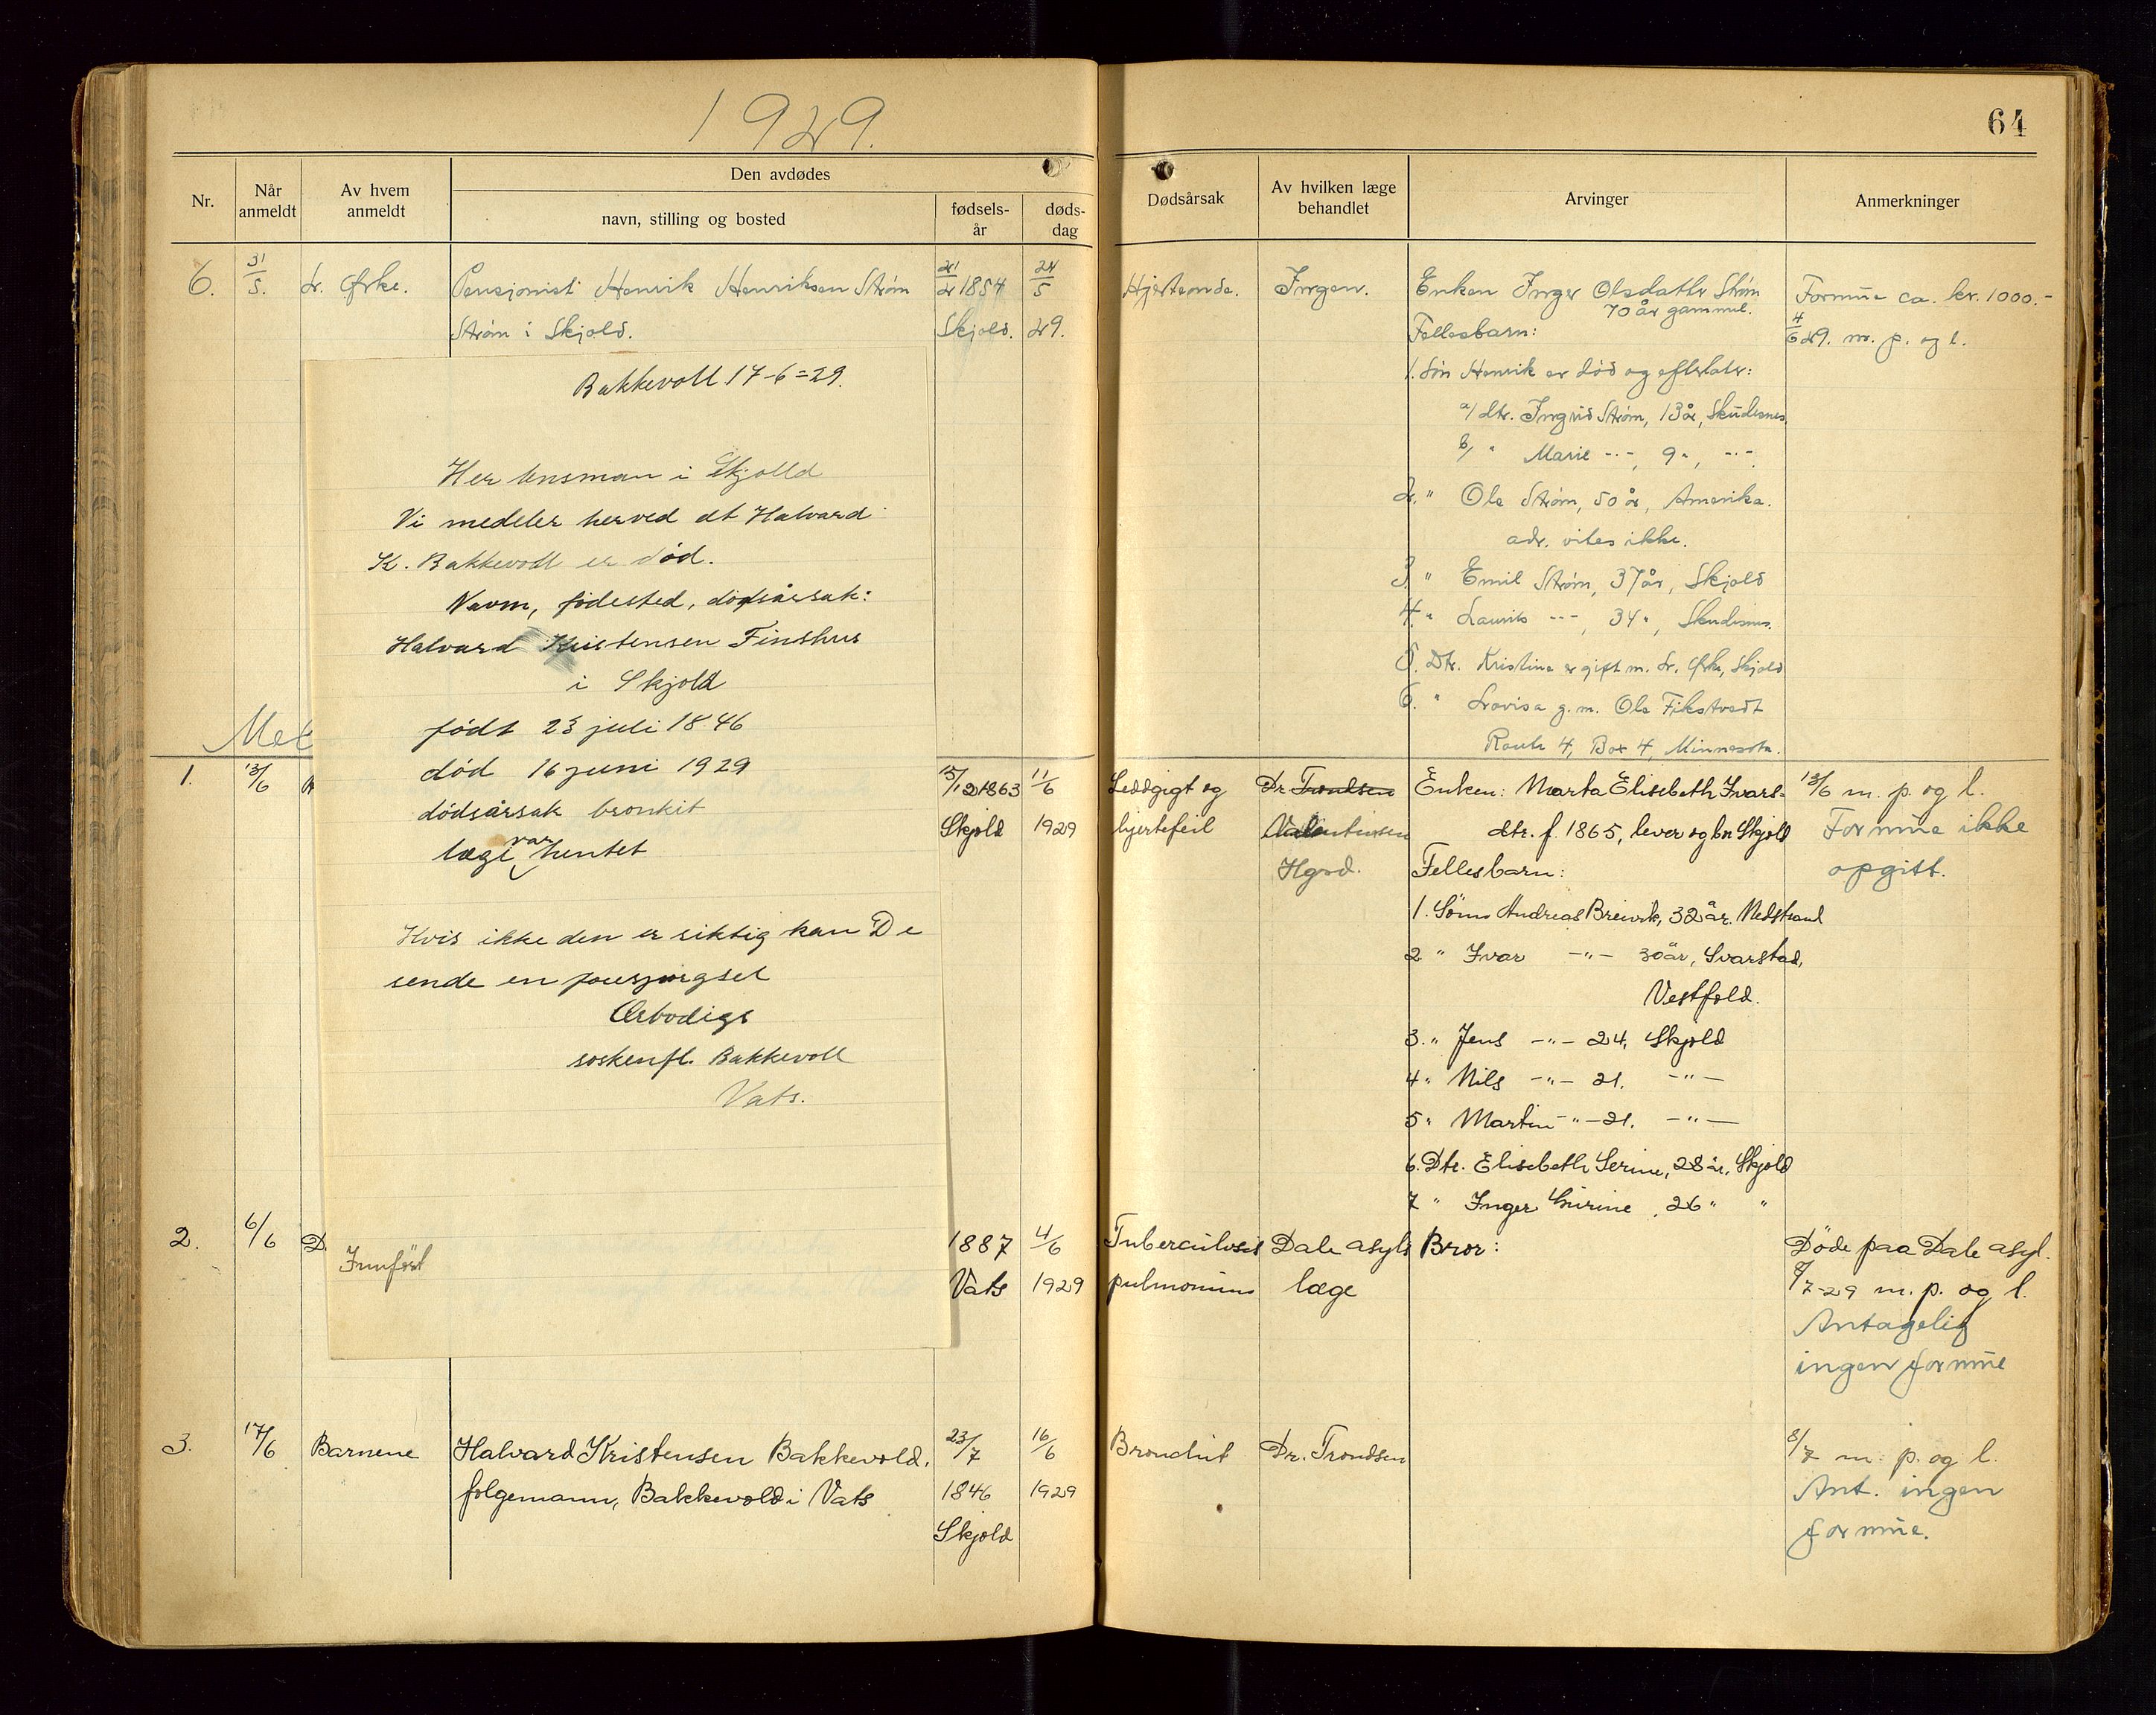 1929.
64
Nr.
Når anmeldt
Av hvem anmeldt
Den avdødes
navn, stilling og bosted
fødsels-år
døds-dag
Dødsårsak
Av hvilken læge behandlet
Arvinger
Anmerkninger
6.
31/5.
L. Ørke.
Pensjonist Henrik Henriksen Strøm
Strøm i Skjold.
21/2 1854
Skjold.
24/5
29.
Hjerteonde.
Ingen.
Enken Inger Olsdatter Strøm
70 år gammel.
Fellesbarn:
1. Søn Henrik er død og efterlater:
a/ dtr. Ingrid Strøm, 13 år, Skudesnes.
b/ " Marie -"-, 9 ", -"-.
2. " Ole Strøm, 50 år, Amerika.
adr. vites ikke.
3. " Emil Strøm, 37 år, Skjold
4. " Laurits -"-, 34 ", Skudesnes.
5. Dtr. Kristine er gift m. L. Ørke, Skjold
6. " Lovisa g.m. Ole Fikstvedt
Route 4, Box 4, Minnesota.
Formue ca. kr. 1000.-
4/6 29. m. p. og l.
Bakkevoll 17-6=29.
Her lensman i Skjolld
Vi medeler herved at Halvard
K. Bakkevoll er død.
Navm, fødested, dødsårsak:
Halvard Kristensen Finshus
i Skjold
født 23 juli 1846
død 16 juni 1929
dødsårsak bronkit
læge var hentet
Hvis ikke den er riktig kan De
sende en
Ærbødigs
søskenfl. Bakkevoll
Vats.
Innført
Met
1.
13/6
15/12 1863
Skjold
11/6
1929
Leddgigt og
hjertefeil
Dr. Trondsen
Valentinsen
Hgsd.
Enken: Marta Elisebeth Ivars-
dtr. f. 1865, lever og bor Skjold
Fellesbarn:
1. Søn Andreas Breivik, 32 år. Nedstrand
2 " Ivar -"- 30 år, Svarstad,
Vestfold.
3. " Jens -"- 24, Skjold
4 " Nils -"- 21. -"-
5 " Martin -"- 21. -"-
6. Dtr. Elisebeth Serine, 28 år, Skjold
7 " Inger Gurine, 26 " "
13/6 m. p. og l.
Formue ikke
opgitt.
2.
6/6
D.
1887
Vats
4/6
1929
Tuberculosis
pulmonum
Dale asyls
læge
Bror:
Døde paa Dale asyl.
8/7-29 m. p. og l.
Antagelig
ingen formue
3.
17/6
Barnene
Halvard Kristensen Bakkevold,
følgemann, Bakkevold i Vats
23/7
1846
Skjold
16/6
1929
Bronchit
Dr. Trondsen
8/7 m. p. og l.
Ant. ingen
formue.